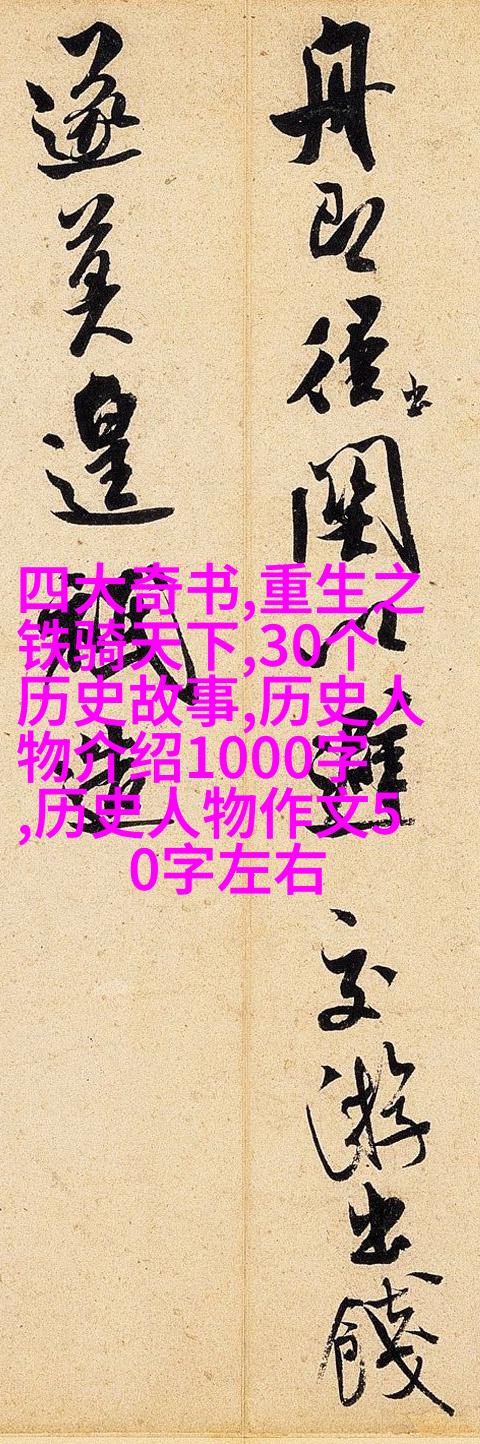 舟即徑出關以避交游出餞
遂莫遑造
四大奇书,重生之
铁骑天下,30个
历史故事,历史人
物介绍1000字
,历史人物作文5
0字左右